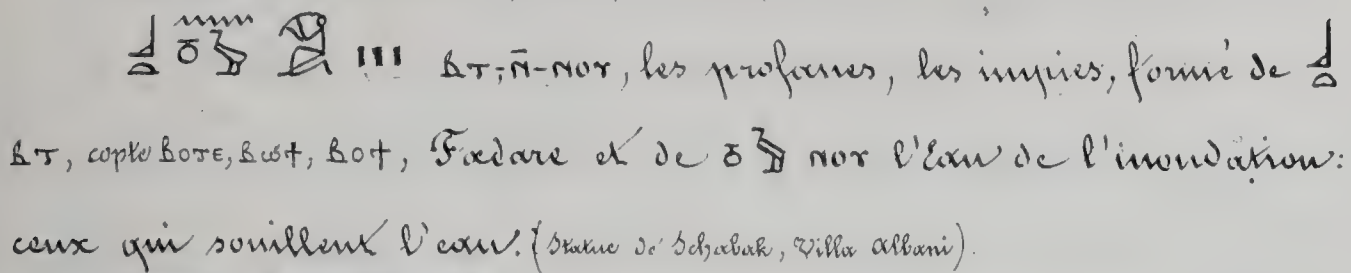 ⲃⲧ-ⲛ̄-ⲛⲟⲩ, les profanes, les impies, formé de
ⲃⲧ, copte ⲃⲟⲧⲉ, ⲃⲱϯ, ⲃⲟϯ, Fœdare et de ⲛⲟⲩ l'Eau de l'inondation:
ceux qui souillent l'eau. (Statue de Schabak, Villa Albani).